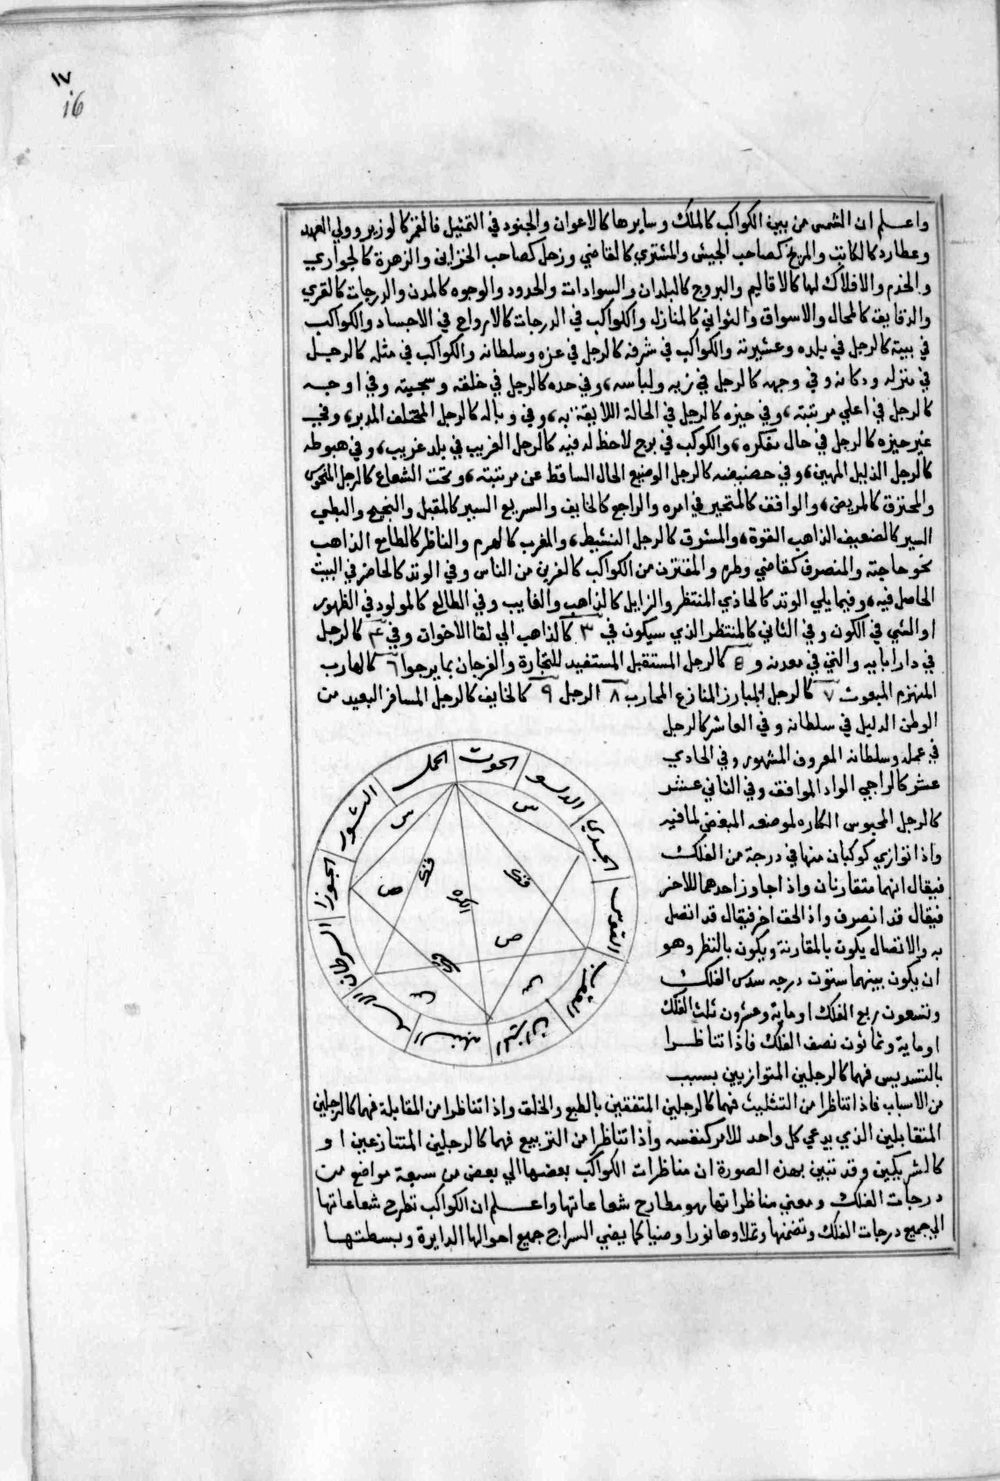 ١٧
16
واعلم ان الشمس من بين الكواكب كالملك وسايرها كالاعوان والجنود في التمثيل فالقمر كالوزير وولي العهد
وعطارد كالكاتب والمريخ كصاحب الجيش والمشتري كالقاضي وزحل كصاحب الخزاين والزهرة كالجواري
والخدم والافلاك لها كالاقاليم والبروج كالبلدان والسوادات والحدود والوجوه كالمدن والدرجات كالقري
والدقايق كالمحال والاسواق والثواني كالمنازل والكواكب في الدرجات كالارواح في الاجساد والكواكب
في بيته كالرجل في بلده وعشيرته والكواكب في شرفه كالرجل في عزه وسلطانه والكواكب في مثله كالرجل
في منزله ودكانه وفي وجهه كالرجل في زيه ولباسه، وفي حده كالرجل في خلقه وسجيته وفي اوجه
كالرجل في اعلي مرتبته، وفي حيزه كالرجل في الحالة اللايقة به، وفي وباله كالرجل المختلف المدبر، وفي
غير حيزه كالرجل في حال مفكره، والكوكب في برج لاحظ له فيه كالرجل الغريب في بلد غريب، وفي هبوطه
كالرجل الذليل المهين، وفي حضيضه كالرجل الوضيع الحال الساقط عن مرتبته، وتحت الشعاع كالرجل المنحوس
والمحترق كالمريض، والواقف كالمتحير في امره والراجع كالخايف والسريع السير كالمقبل والنجيح والبطي
السير كالضعيف الذاهب القوة، والمشرق كالرجل النشيط، والمغرب كالهرم والناظر كالطامع الذاهب
نحو حاجته والمنصرف كقاضي وطره والمقترن من الكواكب كالقرين من الناس وفي الوتد كالحاضر في البيت
الحاصل فيه، وفيما يلي الوتد كالحاذي المنتظر والزايل كالذاهب والغايب وفي الطالع كالمولود في الظهور
او الشي في الكون وفي الثاني كالمنتظر الذي سيكون في ٣ كالذاهب الي لقا الاخوان وفي ۴ كالرجل
في دار ابايه والشي في معدنه و 8 كالرجل المستقبل المستفيد للتجارة والفرحان بما يرجوا ٦ كالهارب
المنهزم المبعوث ٧ كالرجل المبارز المنازع المحارب ٨ الرجل ٩ كالخايف كالرجل المسافر البعيد من
الوطن الدليل في سلطانه وفي العاشر كالرجل
في عمله وسلطانه المعروف المشهور وفي الحادي
عشر كالراجي الواد الموافق وفي الثاني عشر
كالرجل المحبوس الكاره لموضعه المبغض لما فيه
واذا توازي كوكبان منها في درجة من الفلك
فيقال انهما متقارنان واذا جاوز احدهما للاخر
فيقال قد انصرف واذ الحق اخر فيقال قد اتصل
به والاتصال يكون بالمقارنة ويكون بالنظر وهو
ان يكون بينهما ستون درجه سدس الفلك
وتسعون ربع الفلك او ماية وعشرون ثلث الفلك
او ماية وثمانون نصف الفلك فاذا تناظرا
بالتسديس فهما كالرجلين المتوازيين بسبب
من الاسباب فاذا تناظرا من التثليث فهما كالرجلين المتفقين بالطبع والخلق واذا تناظرا من المقابلة فهما كالرجلين
المتقابلين الذي يدعي كل واحد للامر كنفسه واذا تناظرا من التربيع فهما كالرجلين المتنازعين او
كالشريكين وقد تبين بهذه الصورة ان مناظرات الكواكب بعضها الي بعض من سبعة مواضع من
درجات الفلك ومعني مناظراتها هو مطارح شعاعاتها واعلم ان الكواكب تطرح شعاعاتها
الي جميع درجات الفلك وتضمنها وتملاوها نورا وضيا كما يضي السراج جميع احوالها الدايرة وبسطتها
الحمل
الحوت
الدلو
الجدي
القوس
العقرب
الميزان
السنبله
الاسد
السرطان
الجوزا
الثور
س
س
ص
ص